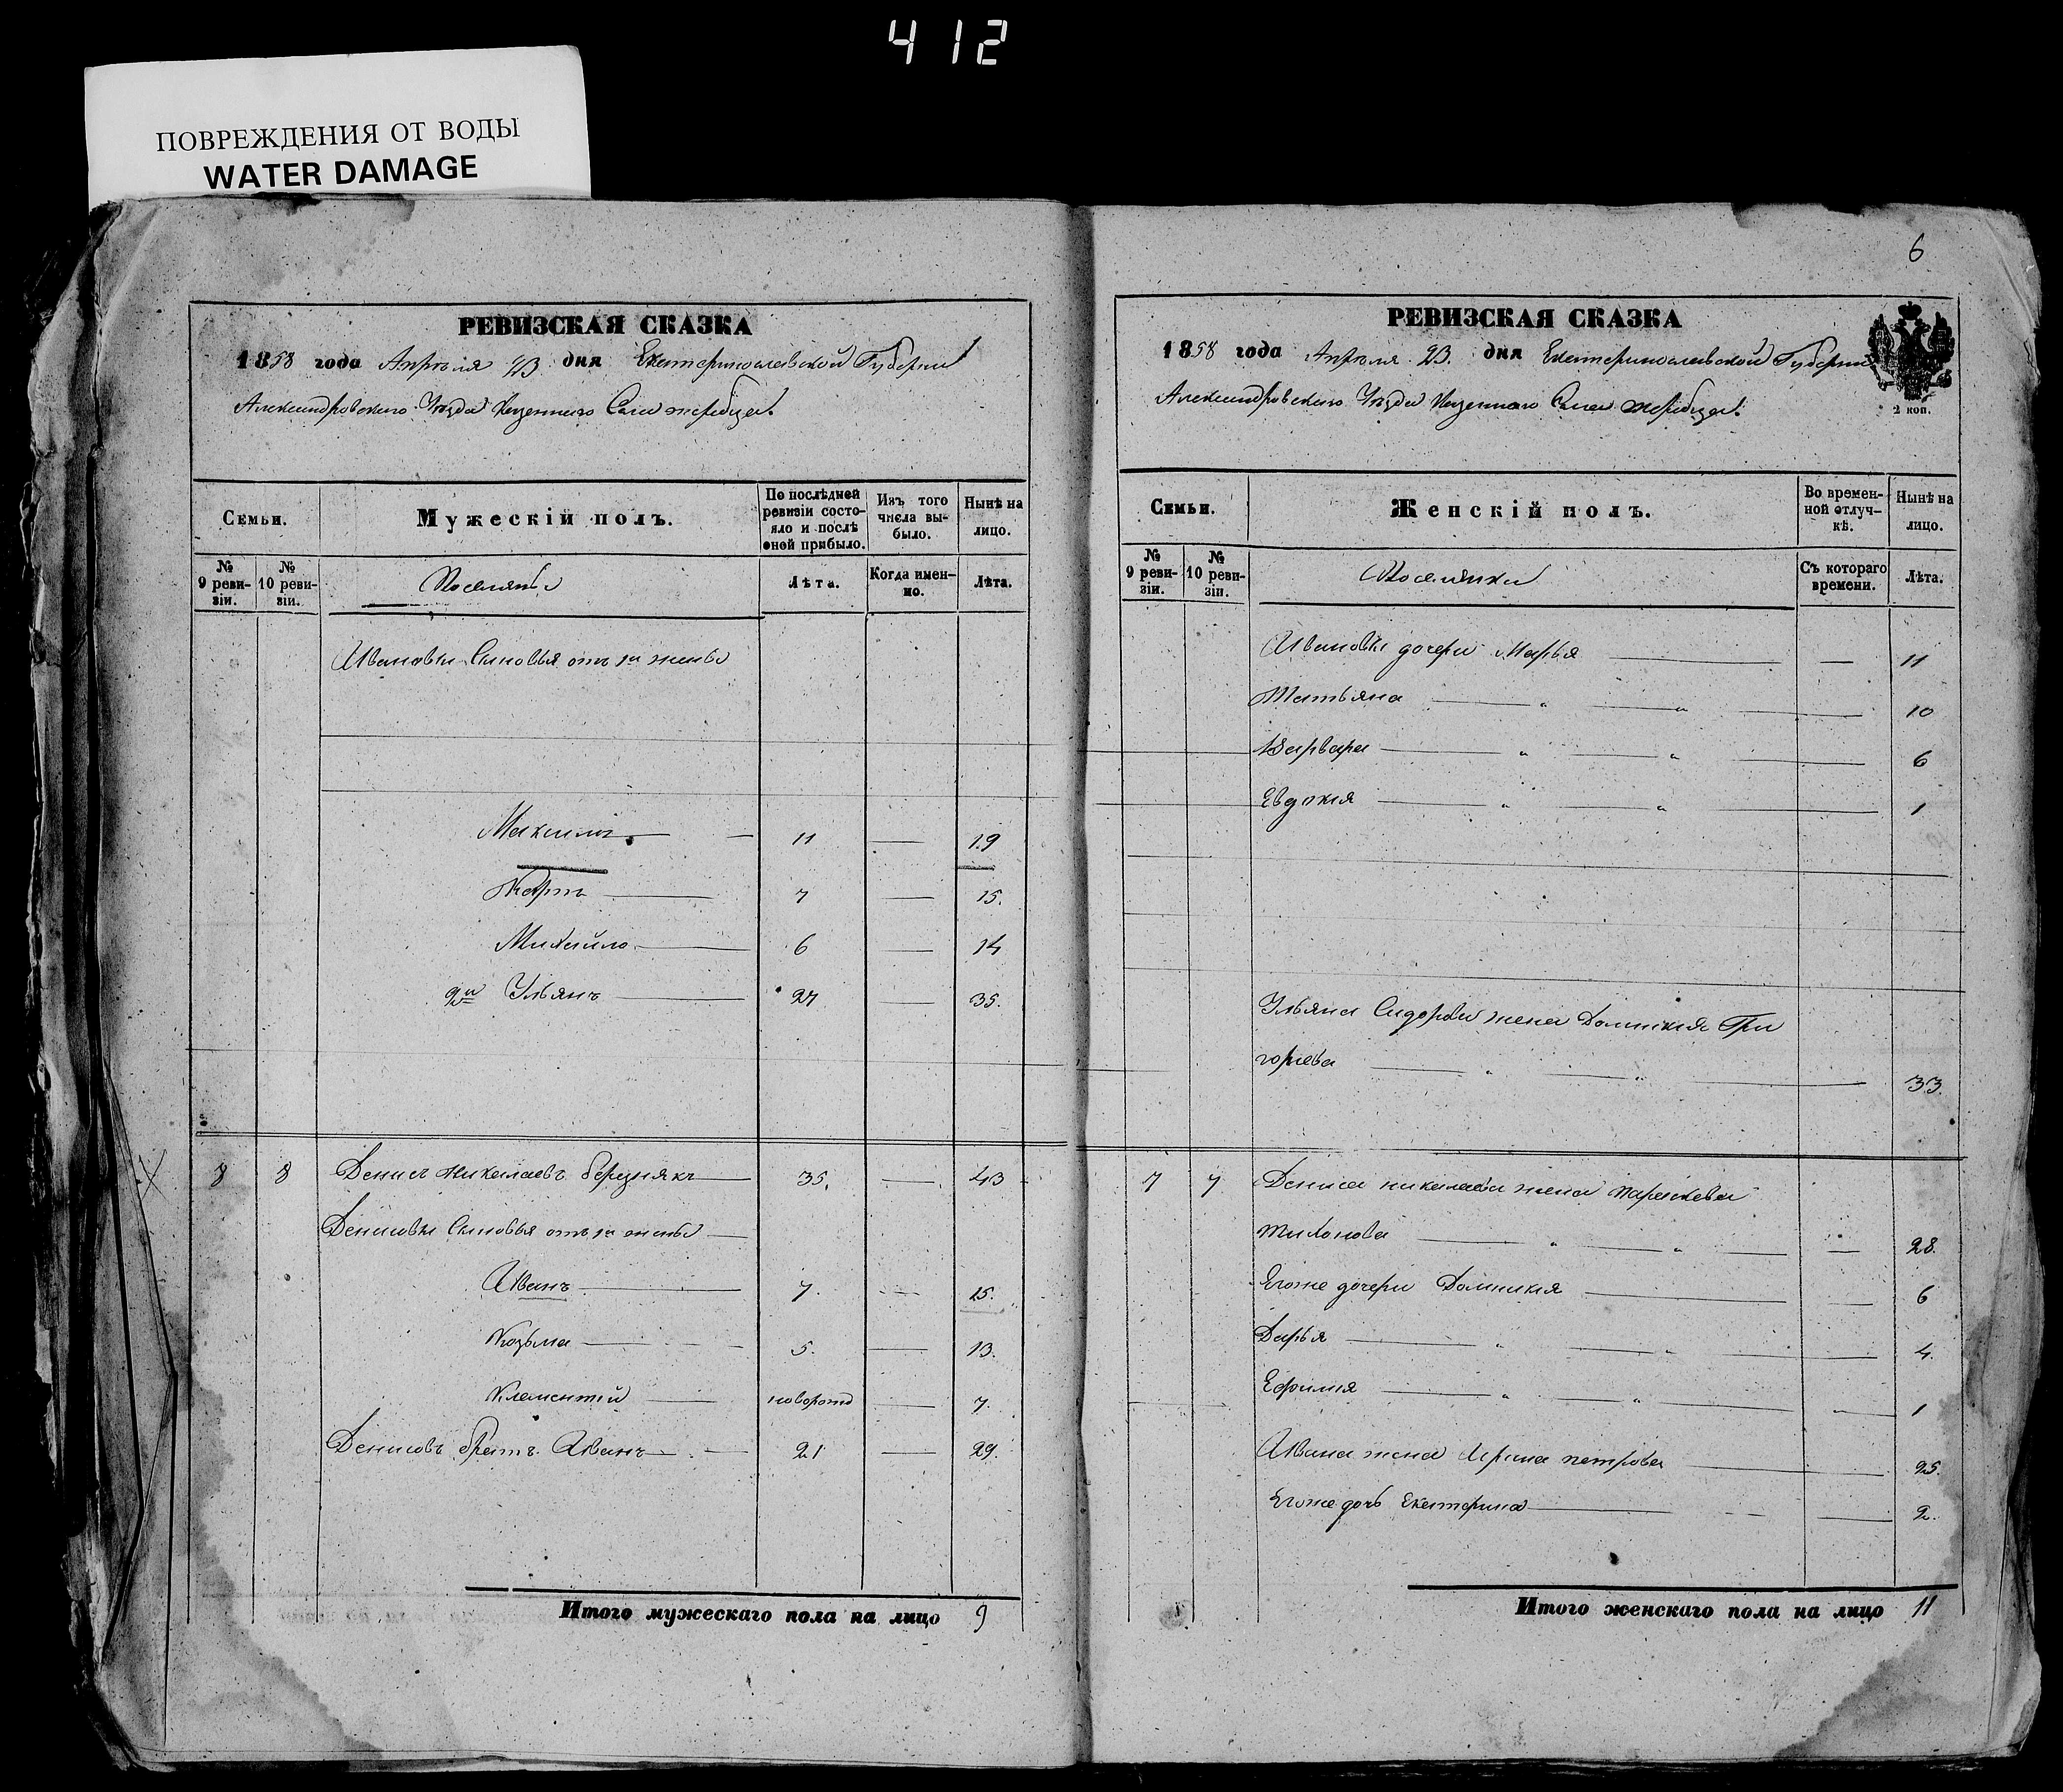 412
ПОВРЕЖДЕНИЯ ОТ ВОДЫ
WATER DAMAGE
РЕВИЗСКАЯ СКАЗКА
1858 года Апреля 23 дня Екатеринославской Губернии
Александровского Уезда Казенного Села Жеребца.
Семьи.
Мужескій полъ.
По послѣдней ревизіи состояло и послѣ оной прибыло.
Изъ того числа выбыло.
Нынѣ на лицо.
№ 9 ревизіи.
№ 10 ревизіи.
Поселяне
Лѣта.
Когда именно.
Лѣта.
Ивановы Сыновья отъ 1й жены
Максимъ 11 19
Карпъ 7 15.
Михайло 6 14
2й Ульянъ 27 35.
8 8 Денисъ Николаевъ Бережнякъ 35. 43
Денисовы Сыновья отъ 1й жены
Иванъ 7. 15.
Козьма 5. 13.
Клементій новорожд 7.
Денисовъ братъ Иванъ 21 29.
Итого мужескаго пола на лицо 9
6
РЕВИЗСКАЯ СКАЗКА
1858 года Апреля 23. дня Екатеринославской Губерніи
Александровского Уезда Казенного Села Жеребца.
2 коп.
Семьи.
Женскій полъ.
Во временной отлучкѣ.
Нынѣ на лицо.
№ 9 ревизіи.
№ 10 ревизіи.
Поселянки
Съ котораго времени.
Лѣта.
Ивановы дочери Марья 11
Татьяна " " 10
Варвара " " 6
Евдокия " " 1
Ульяна Сидорова жена Домникия Гри
горьева " " 33.
7 7 Дениса николаева жена Параскева
Тихонова " " 28.
Егоже дочери Домникия 6
Дарья " " 4.
Ефимия " " 1
Ивана жена Ирина петрова 25.
Егоже дочь Екатерина 2.
Итого женскаго пола на лицо 11